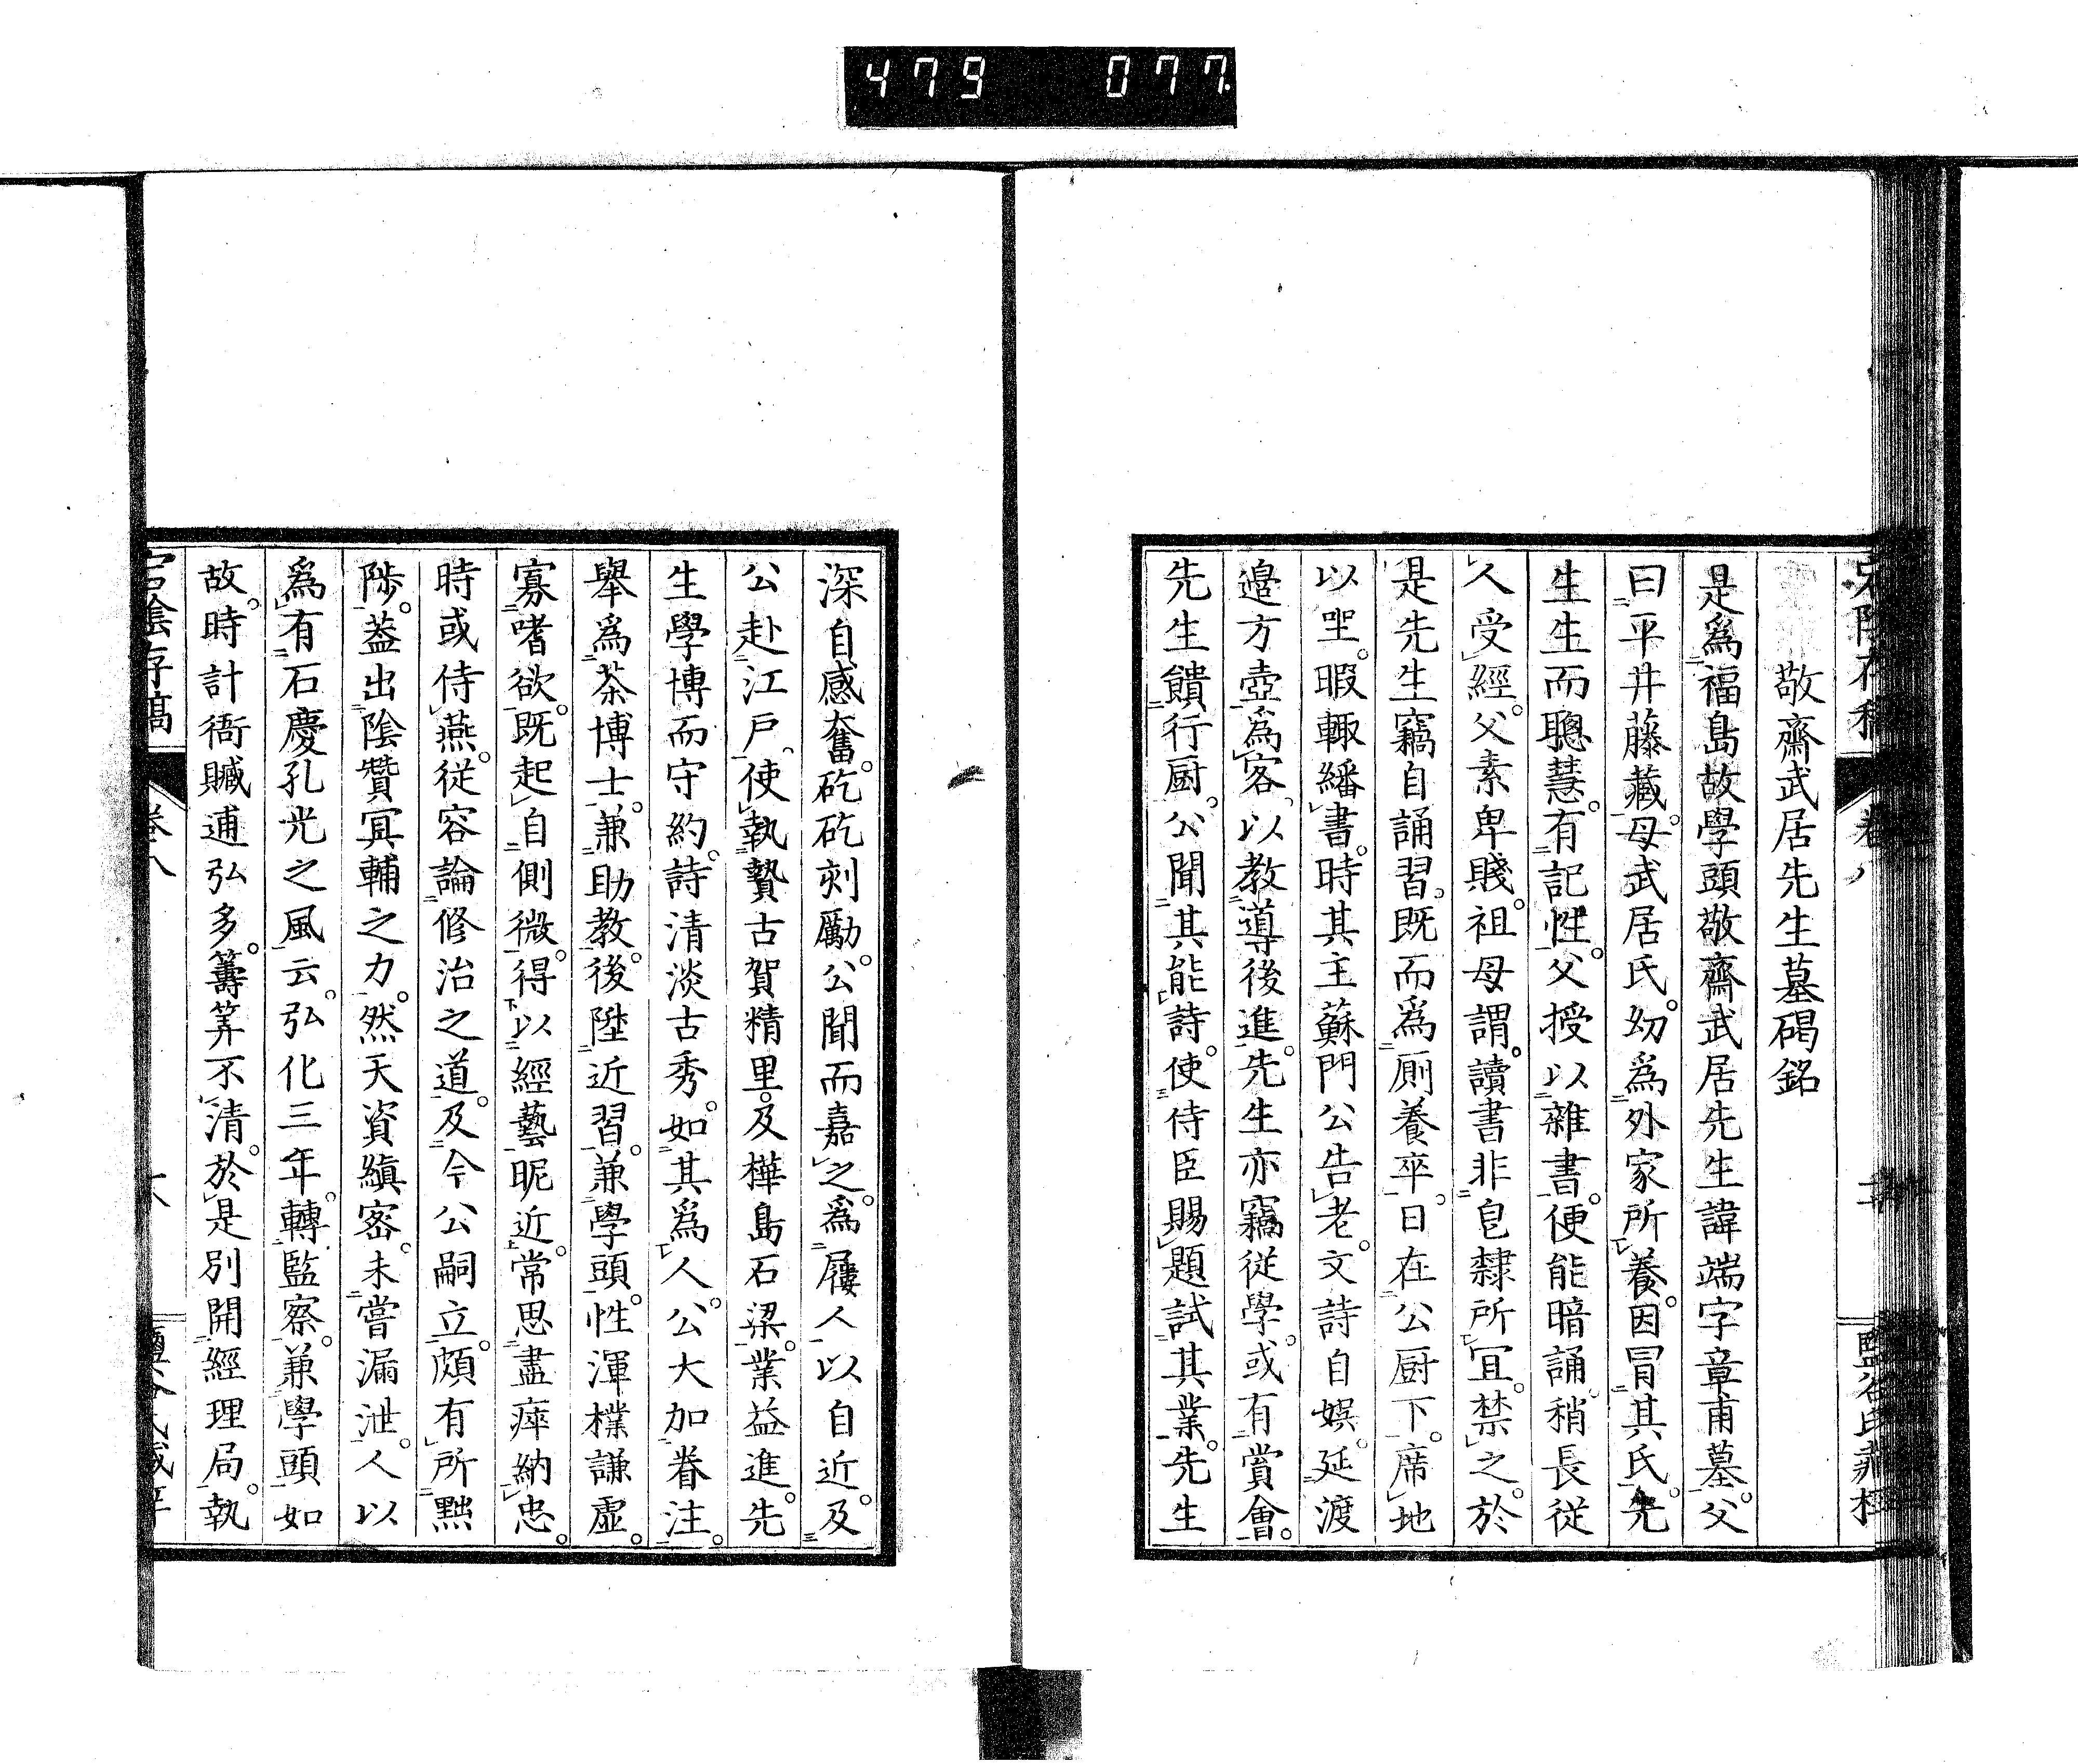 479 077
敬齋武居先生墓碣銘
是爲福島故學頭敬齋武居先生諱端字章甫墓。父
曰平井藤藏。母武居氏。幼爲外家所養。因冐其氏。先
生生而聰慧。有記性。父授以雜書。便能暗誦。稍長從
人受經。父素卑賤。祖母謂。讀書非皀隸所宜。禁之。於
是先生竊自誦習。既而爲厠養卒。日在公厨下。席地
以坐。暇輙繙書。時其主蘇門公告老。文詩自娯。延渡
邉方壺爲客。以教導後進。先生亦竊從學。或有賞會。
先生饋行厨。公聞其能詩。使侍臣賜題試其業。先生
深自感奮。矻矻刻勵。公聞而嘉之。爲屨人以自近。及
公赴江戸。使執贄古賀精里。及樺島石梁。業益進。先
生學博而守約。詩清淡古秀。如其爲人。公大加眷注。
舉爲茶博士。兼助教。後陞近習。兼學頭。性渾樸謙虛。
寡嗜欲。既起自側微。得以經藝昵近。常思盡瘁納忠。
時或侍燕。從容論修治之道。及今公嗣立。頗有所黜
陟。葢出陰贊冥輔之力。然天資縝密。未嘗漏泄。人以
爲有石慶孔光之風云。弘化三年。轉監察。兼學頭如
故。時計衙贓逋弘多。籌筭不清。於是別開經理局。執
宕陰存稿 卷八